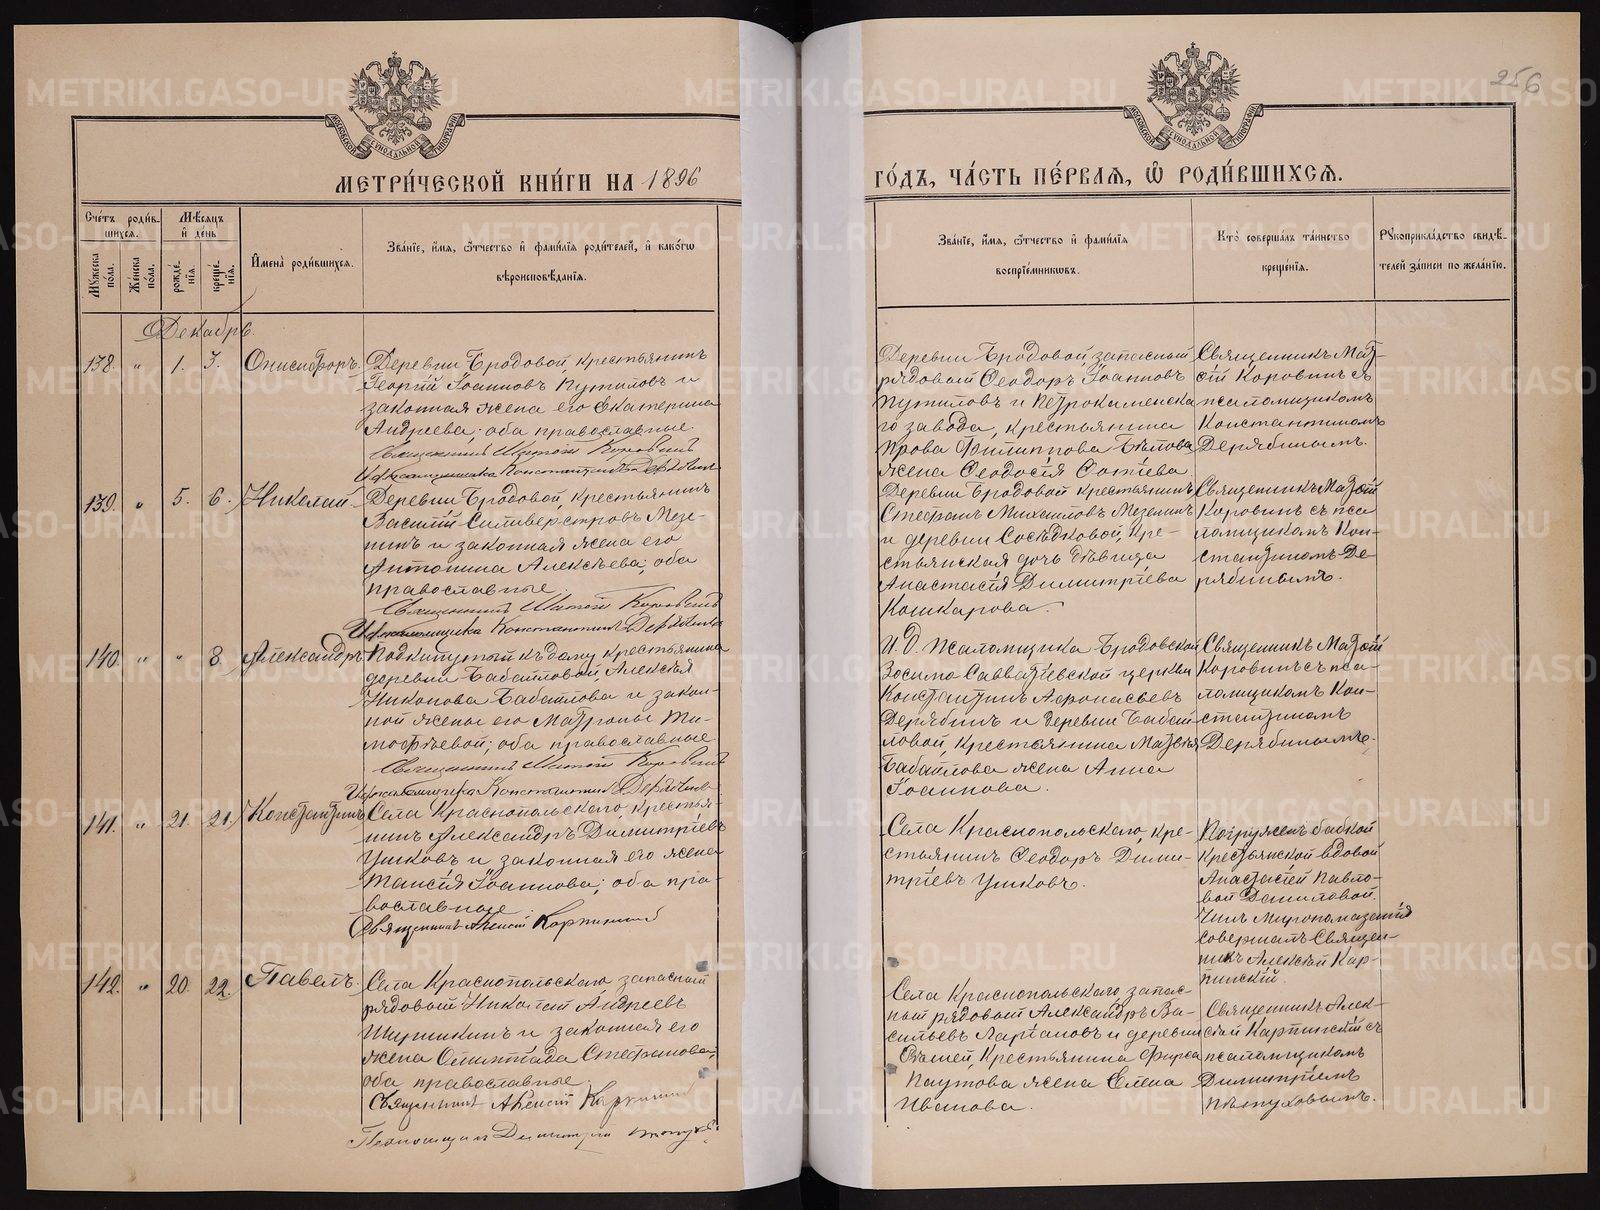 256
МЕТРИ́ЧЕСКОЙ КНИ́ГИ НА 1896
ГО́ДЪ, ЧА́СТЬ ПЕ́РВАЯ, Ѡ҆ РОДИ́ВШИХСЯ.
МОСКОВСКОЙ СѴНОДАЛЬНОЙ ТИПОГРАФІИ
МОСКОВСКОЙ СѴНОДАЛЬНОЙ ТИПОГРАФІИ
Сче́тъ роди́вшихся.
Мꙋ́жеска по́ла.
Же́нска по́ла.
Мѣ́сяцъ и҆ де́нь
рожде́нїѧ.
креще́нїѧ.
И҆мена̀ роди́вшихся.
Зва́нїе, и҆́мѧ, ѻ҆́тчество и҆ фами́лїѧ роди́телей, и҆ како́гѡ
вѣроисповѣ́данїѧ.
Зва́нїе, и҆́мѧ, ѻ҆́тчество и҆ фами́лїѧ
воспрїе́мникѡвъ.
Кто̀ соверша́лъ та́инство
креще́нїѧ.
Рꙋкоприкла́дство свидѣ́-
телей за́писи по жела́нїю.
Декабрь.
138. " 1. 3. Онисифоръ.
Деревни Бродовой, крестьянинъ
Георгій Іоанновъ Путиловъ и
законная жена его Екатерина
Андреева; оба православные.
Священникъ Матѳій Коровинъ
И. д. псаломщика Константинъ Дерябинъ
Деревни Бродовой запасный
рядовый Ѳеодоръ Іоанновъ
Путиловъ и Петрокаменска
го завода, крестьянина
Прова Филиппова Бѣлова
жена Ѳеодосія Фотіева
Священникъ Мат-
ѳій Коровинъ съ
псаломщикомъ
Константиномъ
Дерябинымъ.
139. " 5. 6. Николай.
Деревни Бродовой, крестьянинъ
Василій Силиверстровъ Мезе-
нинъ и законная жена его
Антонина Алексѣева; оба
православные
Священникъ Матѳій Коровинъ
И. д. псаломщика Константинъ Дерябинъ
Деревни Бродовой крестьянинъ
Стефанъ Михаиловъ Мезенинъ
и деревни Сосѣдковой, кре-
стьянская дочь дѣвица
Анастасія Димитріева
Кошкарова.
Священникъ Матѳій
Коровинъ съ пса
ломщикомъ Кон-
стантиномъ Де-
рябинымъ.
140. " " 8. Александръ
Подкинутый къ дому крестьянина
деревни Бабаиловой, Алексѣя
Никонова Бабаилова и закон-
ной жены его Матроны Ти-
мофѣевой; оба православные.
Священникъ Матѳій Коровинъ
И. д. псаломщика Константинъ Дерябинъ
И. д. Псаломщика Бродовской
Зосимо Савватіевской церкви
Константинъ Аѳонасьевъ
Дерябинъ и деревни Бабаи-
ловой, крестьянина Матвѣя
Бабаилова жена Анна
Іоаннова.
Священникъ Матѳій
Коровинъ съ пса-
ломщикомъ Кон-
стантиномъ
Дерябинымъ.
141. " 21. 21. Константинъ
Села Краснопольскаго, крестья-
нинъ Александръ Димитріевъ
Ушковъ и законная его жена
Таисія Іоаннова; оба пра-
вославные
Священникъ Алексій Карпинскій
Села Краснопольскаго, кре-
стьянинъ Ѳеодоръ Дими-
тріевъ Ушковъ.
Погруженъ бабкой
крестьянской вдовой
Анастасіей Павло-
вой Даниловой.
Чинъ Миропомазанія
совершалъ Священ-
никъ Алексій Кар-
пинскій.
142. " 20. 22. Павелъ.
Села Краснопольскаго запасный
рядовый Николай Андреевъ
Ширинкинъ и законная его
жена Олимпіада Стефанова;
оба православные.
Священникъ Алексій Карпинскій
Псаломщикъ Димитрій Пѣтуховъ
Села Краснопольскаго, запас-
ный рядовый Александръ Ва-
сильевъ Ларіоновъ и деревни
Крестьянина Фирса
Паутова жена Елена
Иванова.
Священникъ Алек-
сій Карпинскій съ
псаломщикомъ
Димитріемъ
Пѣтуховымъ.
METRIKI.GASO-URAL.RU